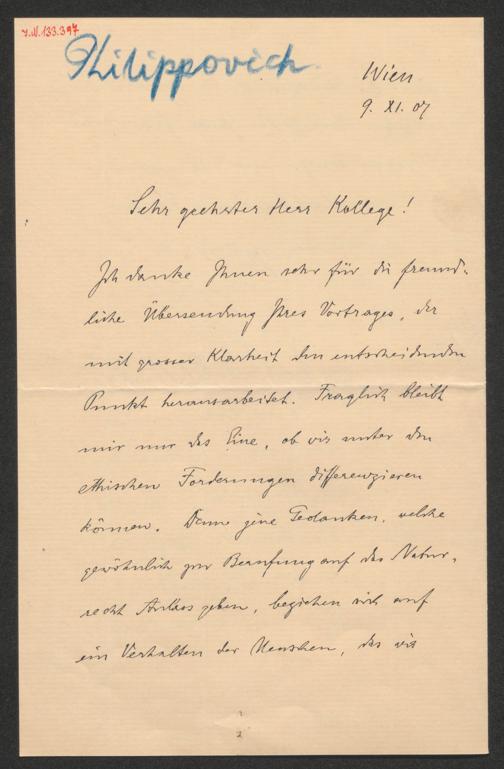 I.N. 133.397
Philippovich
Wien
9. XI. 07
Sehr geehrter Herr Kollege!
Ich danke Ihnen sehr für die freund-
liche Übersendung Ihres Vortrages, der
mit grosser Klarheit den entscheidenden
Punkt herausarbeitet. Fraglich bleibt
mir nur das Eine, ob wir unter den
ethischen Forderungen differenzieren
können. Denn jene Gedanken, welche
gewöhnlich zur Berufung auf das Natur-
recht Anlass geben, beziehen sich auf
ein Verhalten der Menschen, das wir